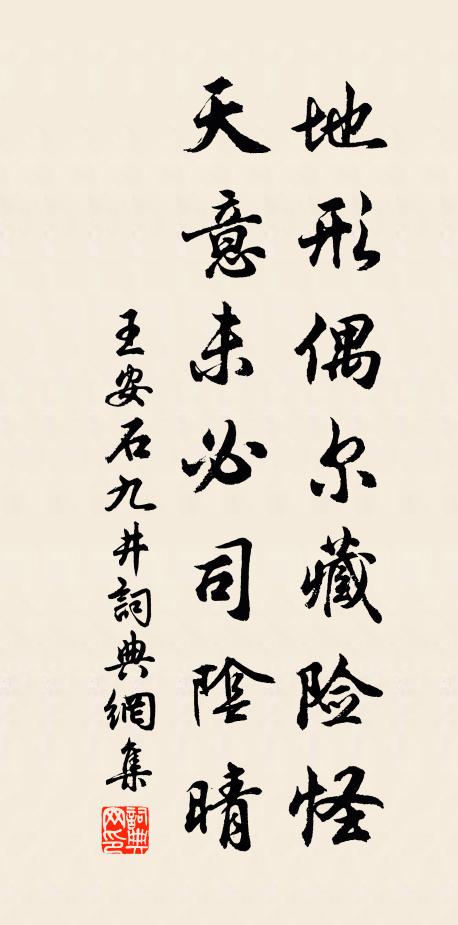 地形偶尔藏险怪
天意未必司陰晴
王安石九井詞典網集
詞典网印